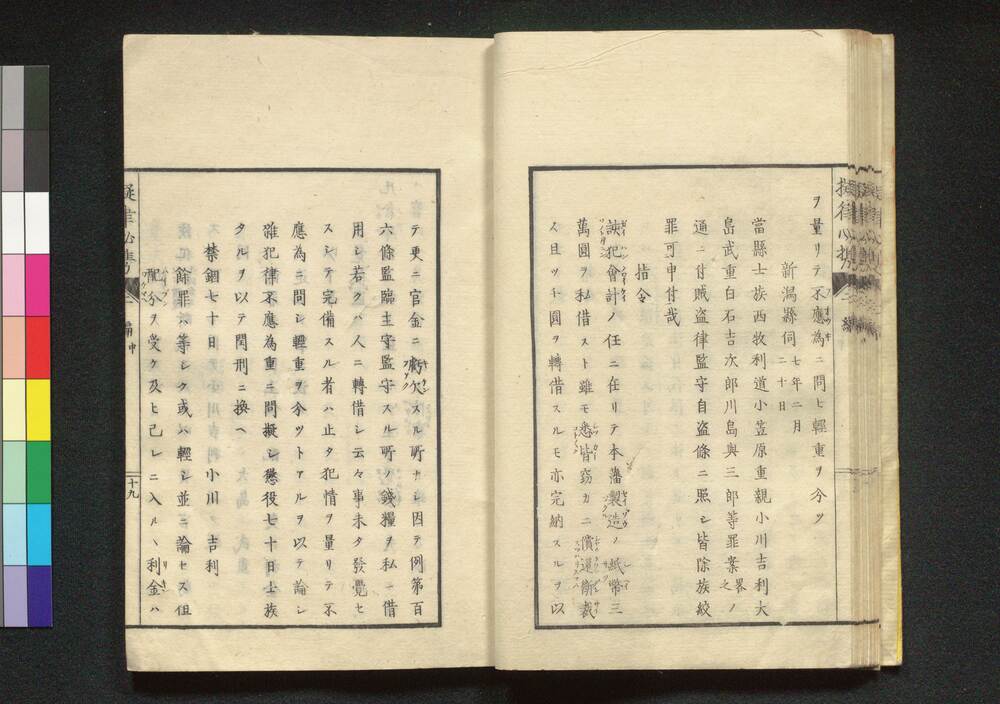 ヲ量リテ不應為ニ問ヒ輕重ヲ分ツ
新潟縣伺 七年二月二十日
當縣士族西牧利道小笠原重親小川吉利大
島武重白石吉次郎川島與三郎等罪案畧之ノ
通ニ付賊盗律監守自盗條ニ照シ皆除族絞
罪可申付哉
指令
詿犯會計ノ任ニ在リテ本藩製造ノ紙幣三
萬圓ヲ私借スト雖モ悉皆窃カニ償還衝裁
ス且ツ千圓ヲ轉借スルモ亦完納スルヲ以
テ更ニ官金ニ虧欠スル所ナシ因テ例第百
六條監臨主守監守スル所ノ錢糧ヲ私ニ借
用シ若クハ人ニ轉借シ云々事未タ發覺セ
スシテ完備スル者ハ止タ犯情ヲ量リテ不
應為ニ問シ輕重ヲ分ツトアルヲ以テ論シ
雜犯律不應為重ニ問擬シ懲役七十日士族
タルヲ以テ閏刑ニ換ヘ
禁錮七十日 小川 吉利
餘罪ハ等シク或ハ輕シ並ニ論セス但
配分ヲ受ケ及ヒ己レニ入ル丶利金ハ
二編中
二十九